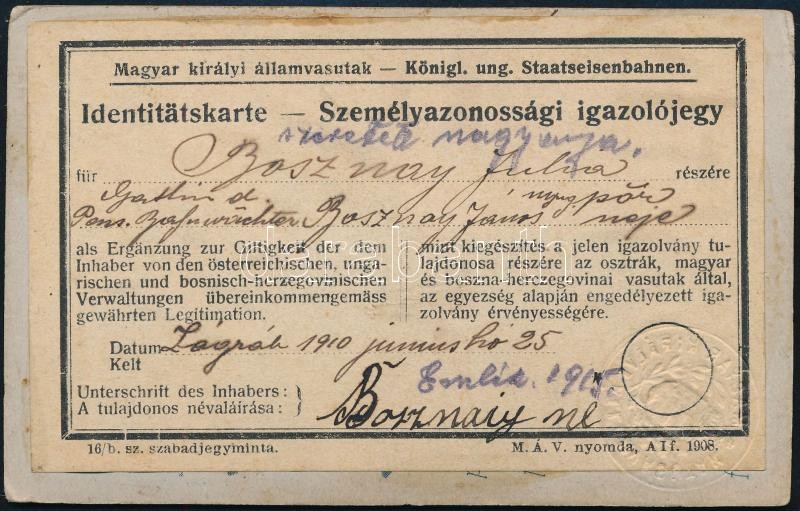 Magyar királyi államvasutak — Königl. ung. Staatseisenbahnen.
Identitätskarte — Személyazonossági igazolójegy
szeretett nagyanyja.
für Bosznay Julia részére
Gattin d.
Pens. Bahnwächter Bosznay János nyug pőr neje
als Ergänzung zur Giltigkeit der dem
Inhaber von den österreichischen, unga-
rischen und bosnisch-herzegovinischen
Verwaltungen übereinkommengemäss
gewährten Legitimation.
mint kiegészítés a jelen igazolvány tu-
lajdonosa részére az osztrák, magyar
és boszna-herczegovinai vasutak által,
az egyezség alapján engedélyezett iga-
zolvány érvényességére.
Datum
Kelt
Zágráb 1910 junius hó 25
Emlék. 1915.
Unterschrift des Inhabers:
A tulajdonos névaláírása:
Bosznaiy né
16/b. sz. szabadjegyminta.
M. Á. V. nyomda, A I f. 1908.
darabanth